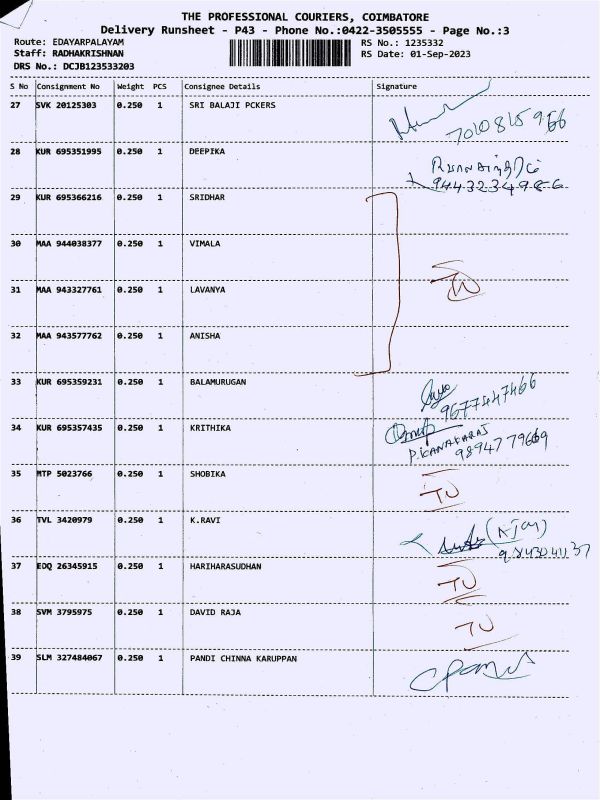 THE PROFESSIONAL COURIERS, COIMBATORE
Delivery Runsheet - P43 - Phone No.:0422-3505555 - Page No.:3
Route: EDAYARPALAYAM RS No.: 1235332
Staff: RADHAKRISHNAN RS Date: 01-Sep-2023
DRS No.: DCJB123533203
S No Consignment No Weight PCS Consignee Details Signature
27 SVK 20125303 0.250 1 SRI BALAJI PCKERS
7010815966
28 KUR 695351995 0.250 1 DEEPIKA
9443234986
29 KUR 695366216 0.250 1 SRIDHAR
30 MAA 944038377 0.250 1 VIMALA
31 MAA 943327761 0.250 1 LAVANYA
TU
32 MAA 943577762 0.250 1 ANISHA
33 KUR 695359231 0.250 1 BALAMURUGAN
9677447466
34 KUR 695357435 0.250 1 KRITHIKA
P.KANAKARAJ
9894779669
35 MTP 5023766 0.250 1 SHOBIKA
TU
36 TVL 3420979 0.250 1 K.RAVI
37 EDQ 26345915 0.250 1 HARIHARASUDHAN
TU
38 SVM 3795975 0.250 1 DAVID RAJA
TU
39 SLM 327484067 0.250 1 PANDI CHINNA KARUPPAN